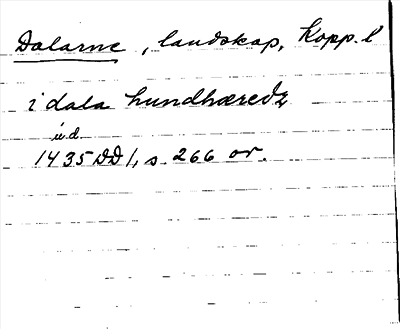 Dalarne, landskap, Kopp. l
i dala hundhæredz
u.d.
1435 DD 1, s. 266 or.